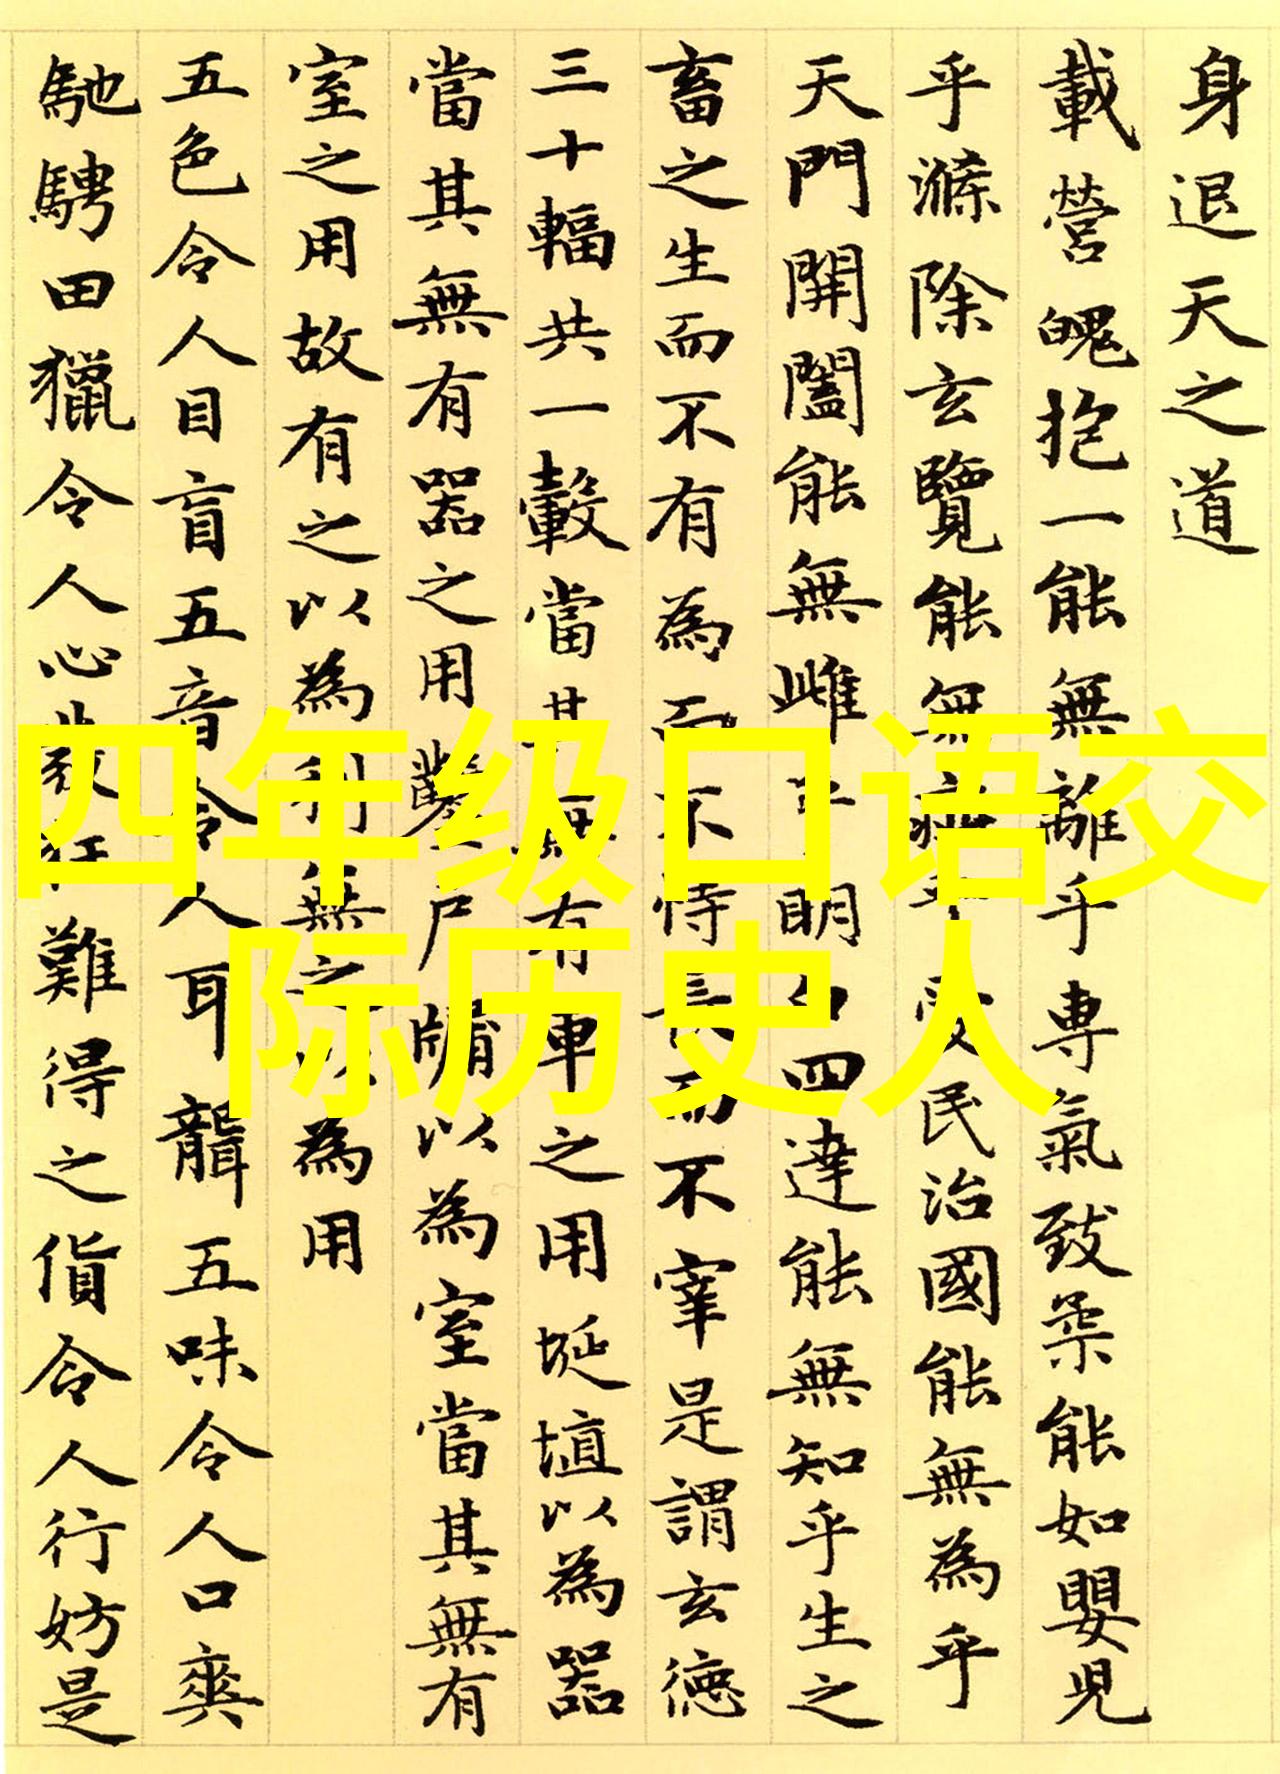 身退天之道
載營魄抱一能無離乎專氣致柔能如嬰兒
乎滌除玄覽能無疵乎愛民治國能無為乎
天門開闔能無雌乎明白四達能無知乎生之
畜之生而不有為而不恃長而不宰是謂玄德
三十輻共一轂當其無有車之用埏埴以為器
當其無有器之用鑿戶牖以為室當其無有
室之用故有之以為利無之以為用
五色令人目盲五音令人耳聾五味令人口爽
馳騁田獵令人心發狂難得之貨令人行妨是
四年级口语交
际历史人